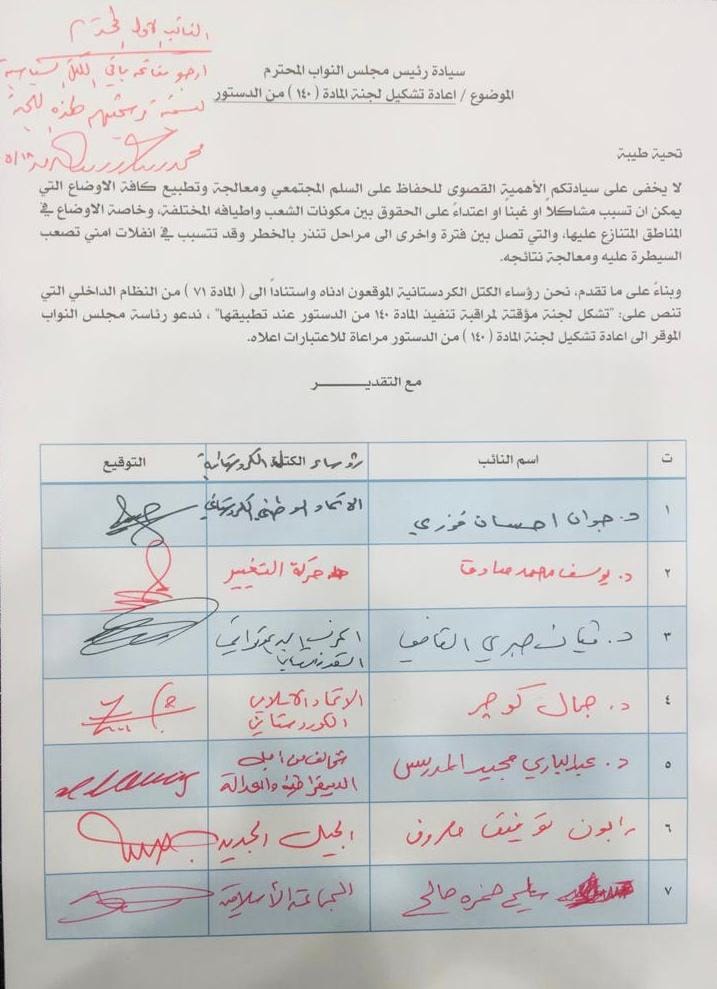 النائب الاول المحترم
ارجو مفاتحة باقي الكتل السياسية
لتسمية مرشحيهم لهذه اللجنة
سيادة رئيس مجلس النواب المحترم
الموضوع / اعادة تشكيل لجنة المادة (١٤٠) من الدستور
تحية طيبة
لا يخفى على سيادتكم الأهمية القصوى للحفاظ على السلم المجتمعي ومعالجة وتطبيع كافة الاوضاع التي
يمكن ان تسبب مشاكلاً او غبناً او اعتداءً على الحقوق بين مكونات الشعب واطيافه المختلفة، وخاصة الاوضاع في
المناطق المتنازع عليها، والتي تصل بين فترة واخرى الى مراحل تنذر بالخطر وقد تتسبب في انفلات امني تصعب
السيطرة عليه ومعالجة نتائجه.
وبناءً على ما تقدم، نحن رؤساء الكتل الكردستانية الموقعون ادناه واستناداً الى (المادة ٧١) من النظام الداخلي التي
تنص على: "تشكل لجنة مؤقتة لمراقبة تنفيذ المادة ١٤٠ من الدستور عند تطبيقها"، ندعو رئاسة مجلس النواب
الموقر الى اعادة تشكيل لجنة المادة (١٤٠) من الدستور مراعاة للاعتبارات اعلاه.
مع التقديـــــــــر
ت اسم النائب رؤساء الكتلة الكردستانية التوقيع
١ د. جوان احسان فوزي الاتحاد الوطني الكردستاني
٢ د. يوسف محمد صادق حركة التغيير
٣ د. فيان صبري القاضي الحزب الديمقراطي
٤ د. جمال كوجر الاتحاد الاسلامي
الكوردستاني
٥ د. عبدالباري مجيد المدريس تحالف من اجل
الديمقراطية والعدالة
٦ رابون توفيق معروف الجيل الجديد
٧ سليم حمزه صالح الجماعة الأسلامية